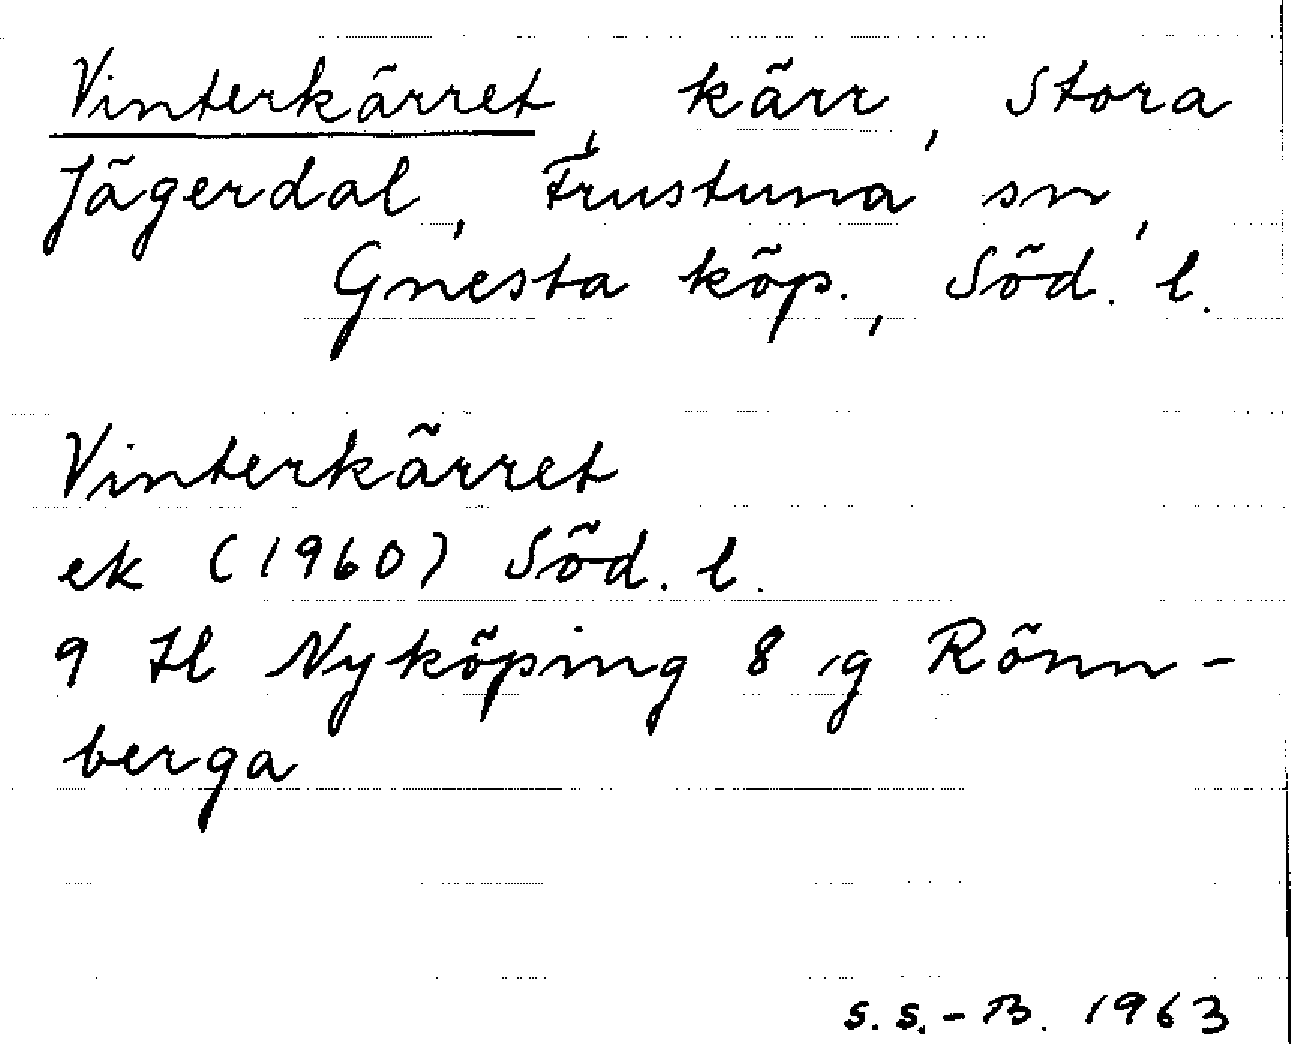 Vinterkärret, kärr, Stora
Jägerdal, Frustuna sn,
Gnesta köp., Söd. l.
Vinterkärret
ek (1960) Söd. l.
9 H Nyköping 8 g Rönn-
berga
S. S.-B. 1963